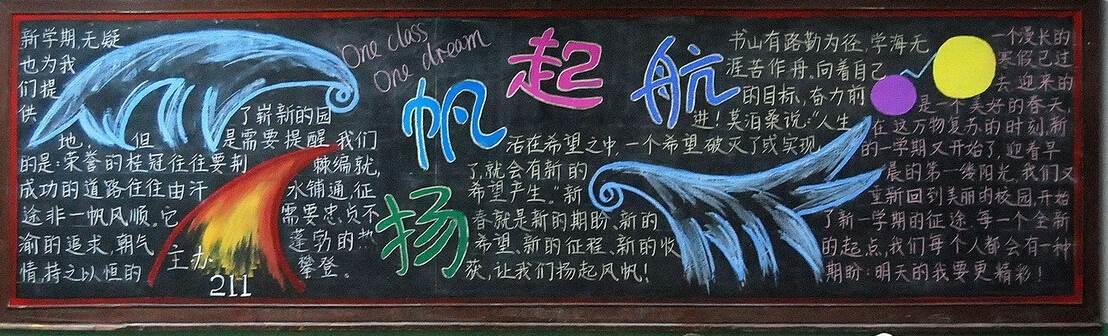 One class
One dream
扬帆起航
新学期,无疑
也为我
们提
供了崭新的园
地,但是需要提醒我们
的是:荣誉的桂冠往往要荆棘编就,
成功的道路往往由汗水铺通,征
途非一帆风顺。它需要忠贞不
渝的追求,朝气蓬勃的热
情,持之以恒的攀登。
主办
211
书山有路勤为径,学海无
涯苦作舟,向着自己
的目标,奋力前
进!莫泊桑说:“人生
活在希望之中,一个希望破灭了或实现
了,就会有新的
希望产生。”新
春就是新的期盼、新的
希望、新的征程、新的收
获,让我们扬起风帆!
一个漫长的
寒假已过
去,迎来的
是一个美好的春天,
在这万物复苏的时刻,新
的一学期又开始了,迎着早
晨的第一缕阳光,我们又
重新回到美丽的校园,开始
了新一学期的征途,每一个全新
的起点,我们每个人都会有一种
期盼:明天的我要更精彩!